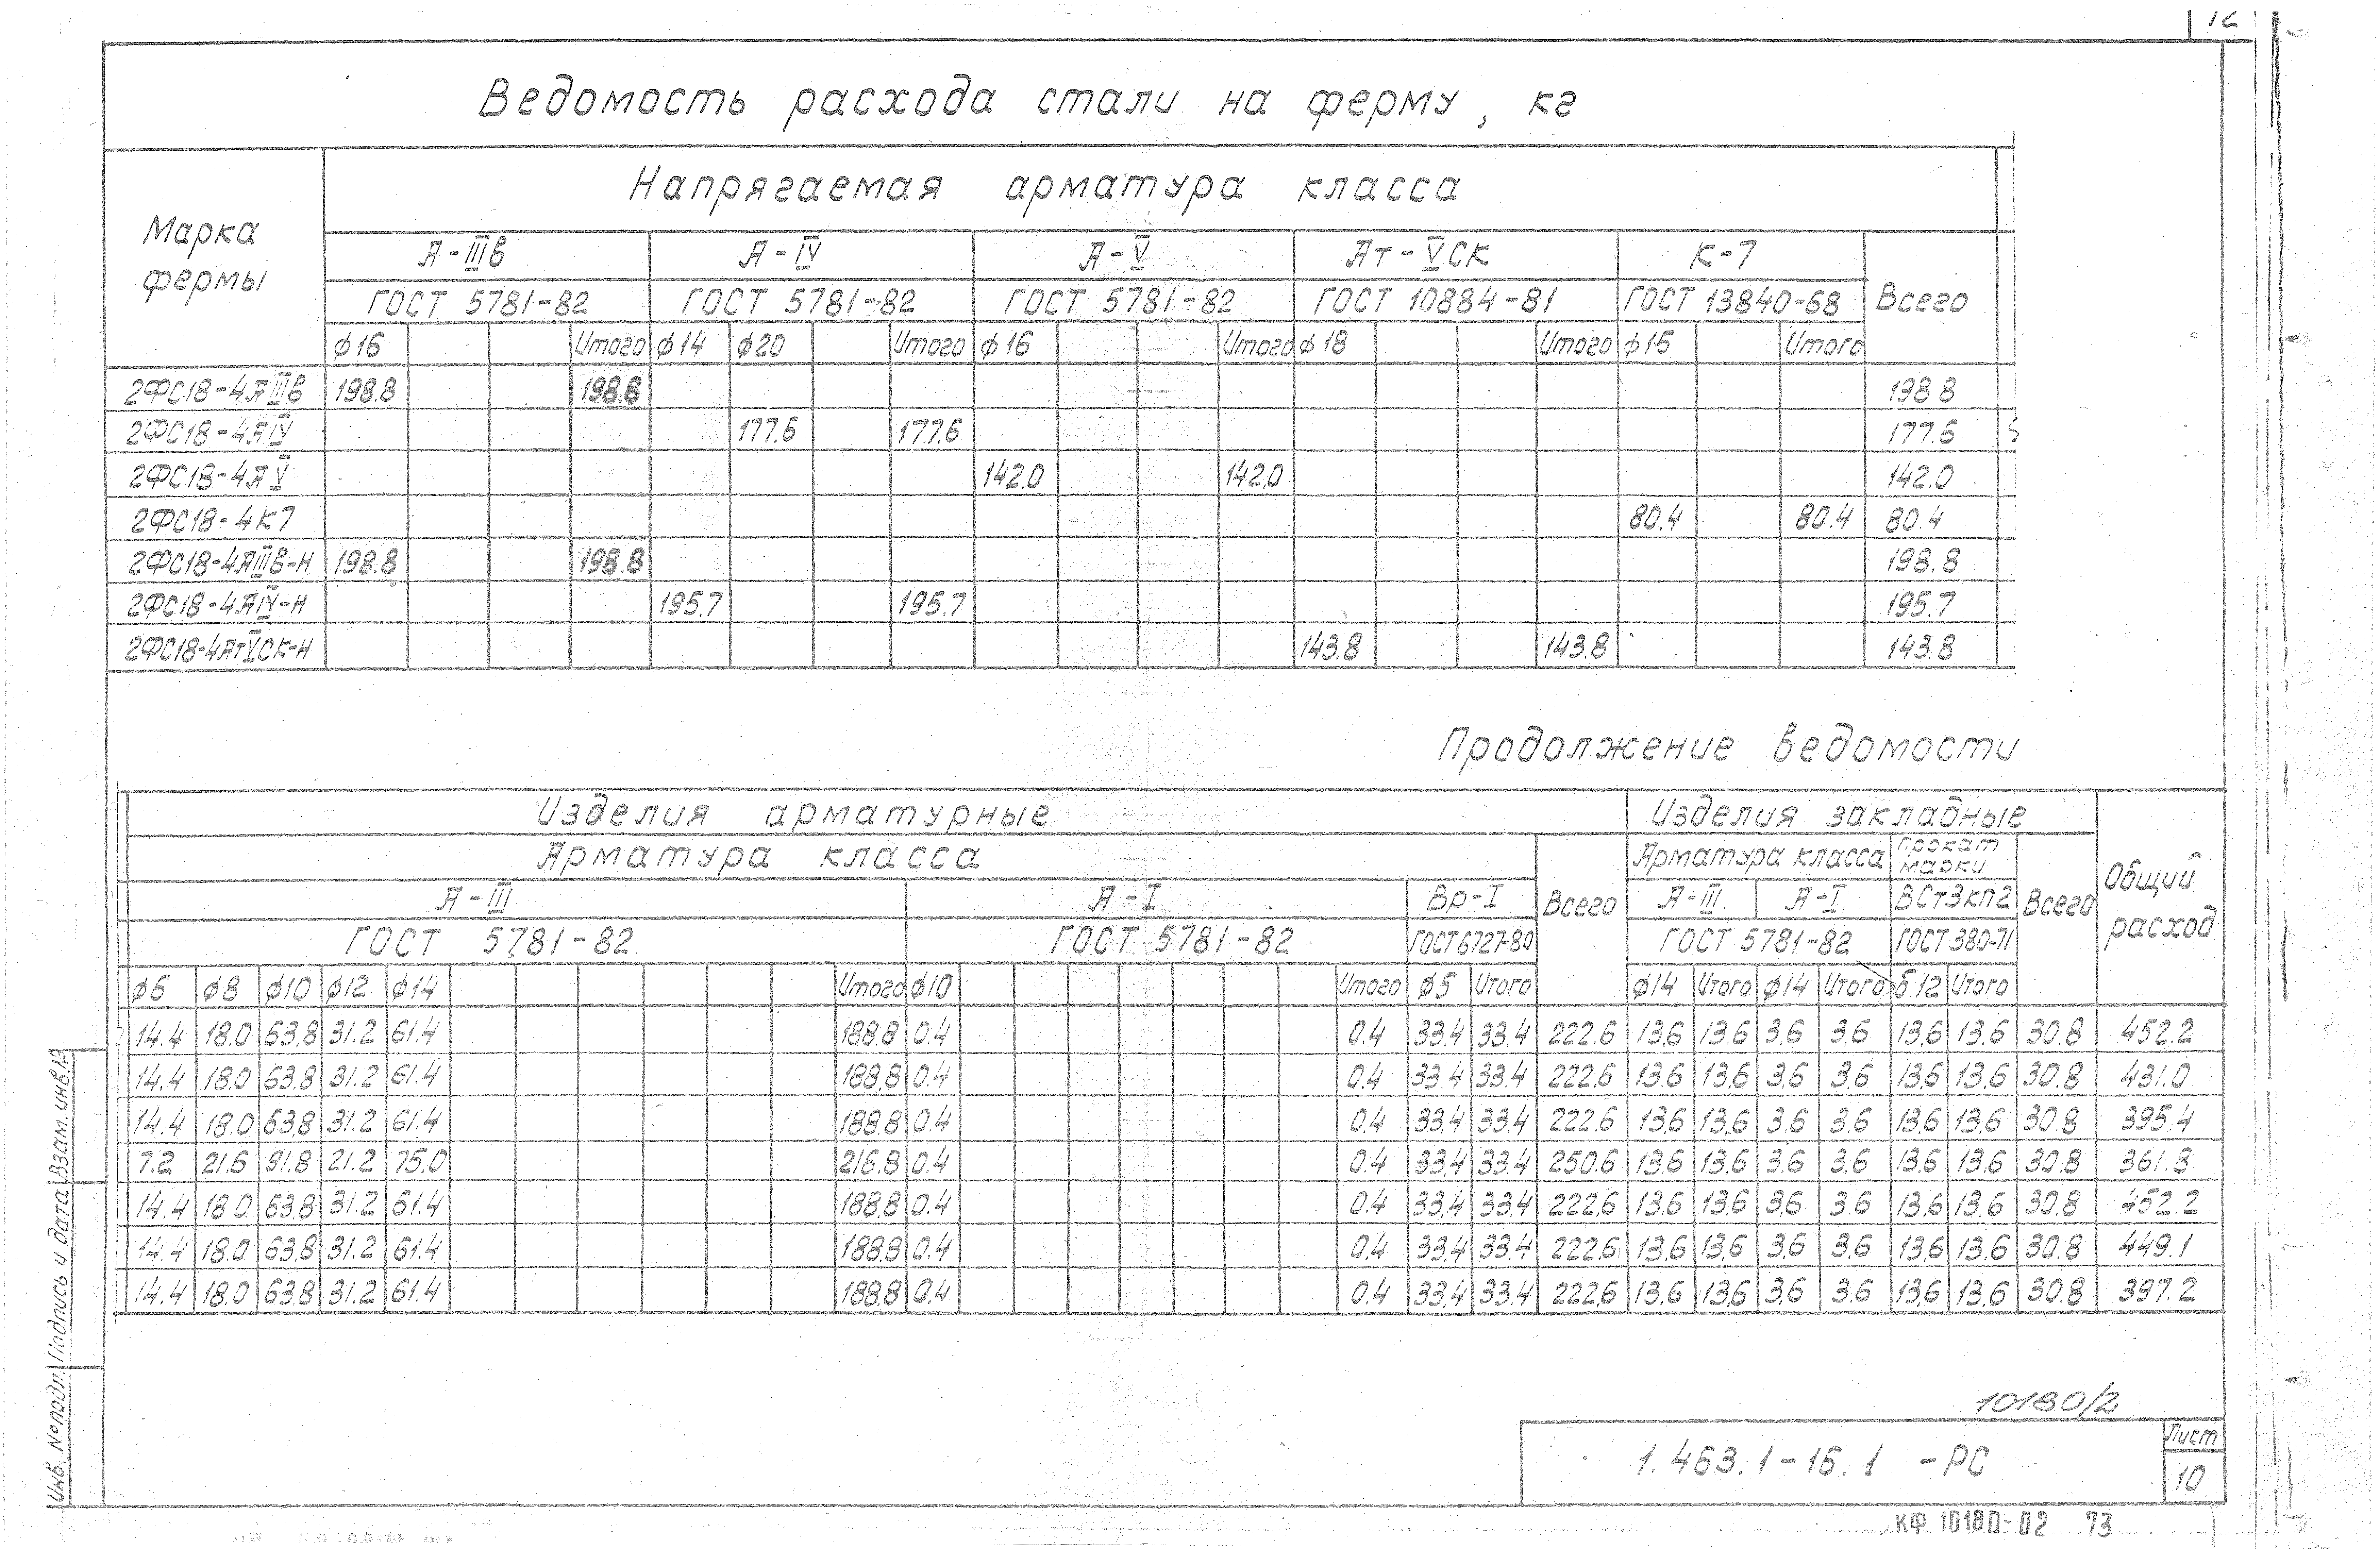 Ведомость расхода стали на ферму, кг
Марка фермы
Напрягаемая арматура класса
А-IIIв А-IV А-V Ат-VСК К-7 Всего
ГОСТ 5781-82 ГОСТ 5781-82 ГОСТ 5781-82 ГОСТ 10884-81 ГОСТ 13840-68
ф16 Итого ф14 ф20 Итого ф16 Итого ф18 Итого ф15 Итого
2ФС18-4АIIIв 198.8 198.8 198 8
2ФС18-4АIV 177.6 177.6 177.6
2ФС18-4АV 142.0 142.0 142.0
2ФС18-4К7 80.4 80.4 80.4
2ФС18-4АIIIв-Н 198.8 198.8 198.8
2ФС18-4АIV-Н 195.7 195.7 195.7
2ФС18-4АтVСК-Н 143.8 143.8 143.8
Продолжение ведомости
Изделия арматурные Изделия закладные Общий расход
Арматура класса Всего Арматура класса Прокат марки Всего
А-III А-I Вр-I А-III А-I ВСт3кп2
ГОСТ 5781-82 ГОСТ 5781-82 ГОСТ 6727-80 ГОСТ 5781-82 ГОСТ 380-71
ф6 ф8 ф10 ф12 ф14 Итого ф10 Итого ф5 Итого ф14 Итого ф14 Итого δ12 Итого
14.4 18.0 63.8 31.2 61.4 188.8 0.4 0.4 33.4 33.4 222.6 13.6 13.6 3.6 3.6 13.6 13.6 30.8 452.2
14.4 18.0 63.8 31.2 61.4 188.8 0.4 0.4 33.4 33.4 222.6 13.6 13.6 3.6 3.6 13.6 13.6 30.8 431.0
14.4 18.0 63.8 31.2 61.4 188.8 0.4 0.4 33.4 33.4 222.6 13.6 13.6 3.6 3.6 13.6 13.6 30.8 395.4
7.2 21.6 91.8 21.2 75.0 216.8 0.4 0.4 33.4 33.4 250.6 13.6 13.6 3.6 3.6 13.6 13.6 30.8 361.8
14.4 18.0 63.8 31.2 61.4 188.8 0.4 0.4 33.4 33.4 222.6 13.6 13.6 3.6 3.6 13.6 13.6 30.8 452.2
14.4 18.0 63.8 31.2 61.4 188.8 0.4 0.4 33.4 33.4 222.6 13.6 13.6 3.6 3.6 13.6 13.6 30.8 449.1
14.4 18.0 63.8 31.2 61.4 188.8 0.4 0.4 33.4 33.4 222.6 13.6 13.6 3.6 3.6 13.6 13.6 30.8 397.2
Инв. № подл. Подпись и дата Взам. инв. №
10180/2
1.463.1-16.1 -РС
Лист
10
КФ 10180-02 73